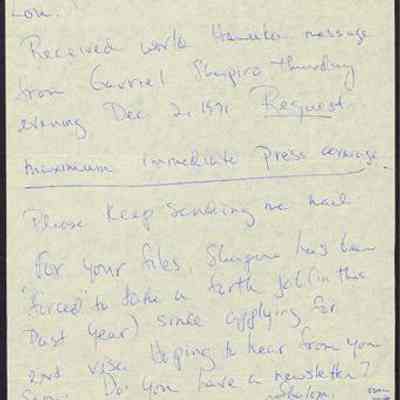 Lou.
Received world Hanuka message
from Gavriel Shapiro thursday
evening Dec 2, 1971 Request
maximum immediate press coverage.
Please keep sending me mail
for your files. Shapiro has been
"forced" to take a forth job (in this
past year) since applying for
2nd visa. Hoping to hear from you
soon. Do you have a newsletter?
Shalom,